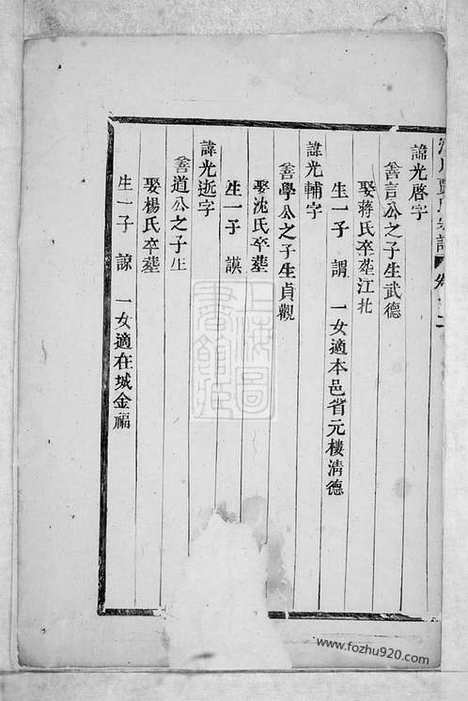 諱光啓字
善言公之子生武德
娶蔣氏卒塟江北
生一子 謂 一女適本邑省元樓淸德
諱光輔字
善學公之子生貞觀
娶沈氏卒塟
生一子 謨
諱光逝字
善道公之子生
娶楊氏卒塟
生一子 諒 一女適在城金福
www.fozhu920.com